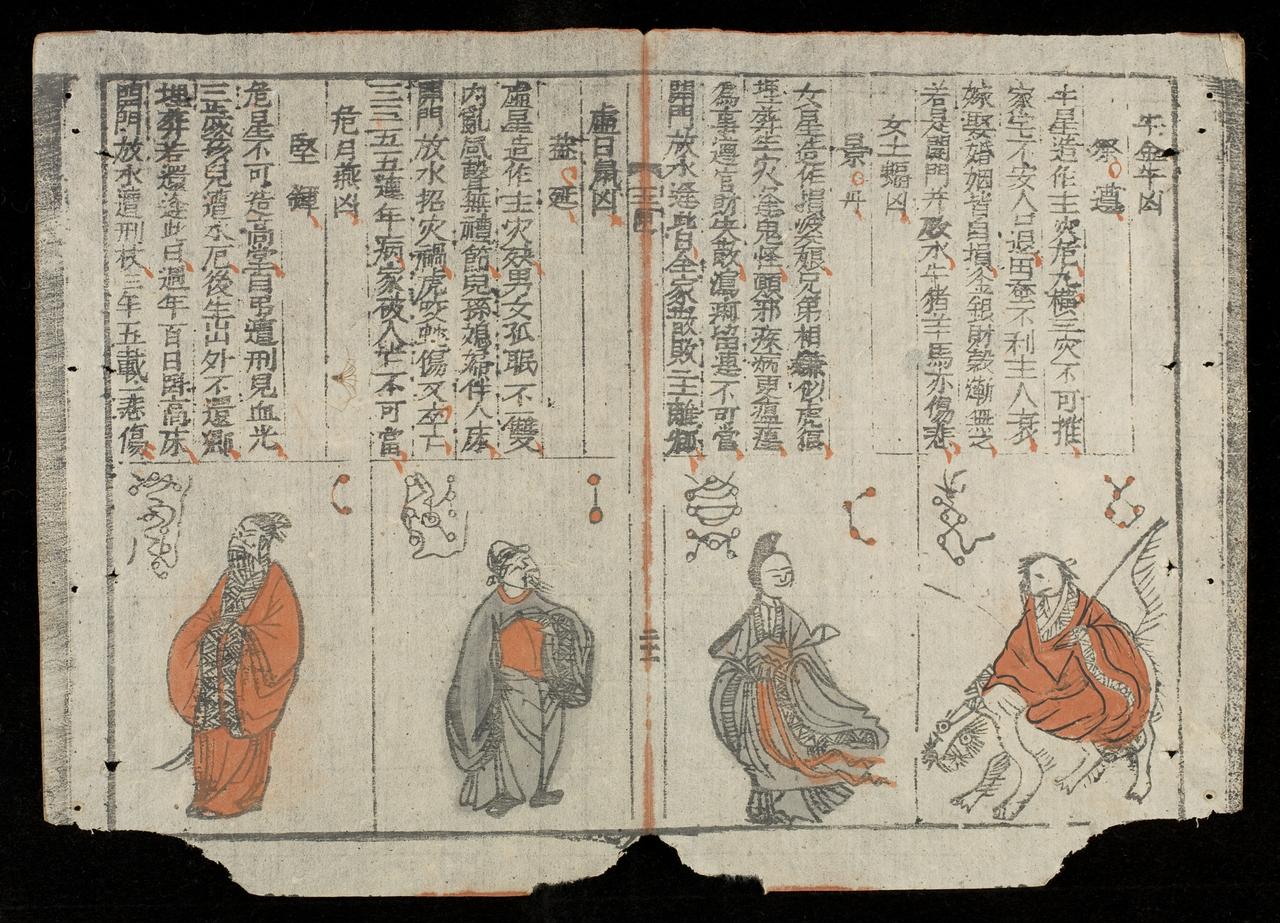 牛金牛凶
祭遵
牛星造作主灾危九横三灾不可推
家宅不安人口退田蚕不利主人衰
嫁娶婚姻皆自損金銀財穀漸無之
若是開門并放水牛猪羊馬亦傷悲
女土蝠凶
景丹
女星造作損婆娘兄弟相嫌似虎狼
埋葬生灾逢鬼怪顛邪疾病更瘟瘟
為事遭官財失散瀉痢留連不可當
開門放水逢此日全家散敗主離鄉
虛日鼠凶
盖延
虛星造作主灾殃男女孤眠不一雙
內亂風聲無禮節兒孫媳婦伴人床
開門放水招灾禍虎咬蛇傷又卒亡
三三五五連年病家破人亡不可當
危月燕凶
堅鐔
危星不可造高堂自弔遭刑見血光
三歲孩兒遭水厄後生出外不還鄉
埋葬若還逢此日週年百日臥高床
開門放水遭刑杖三年五載一悲傷
二十一